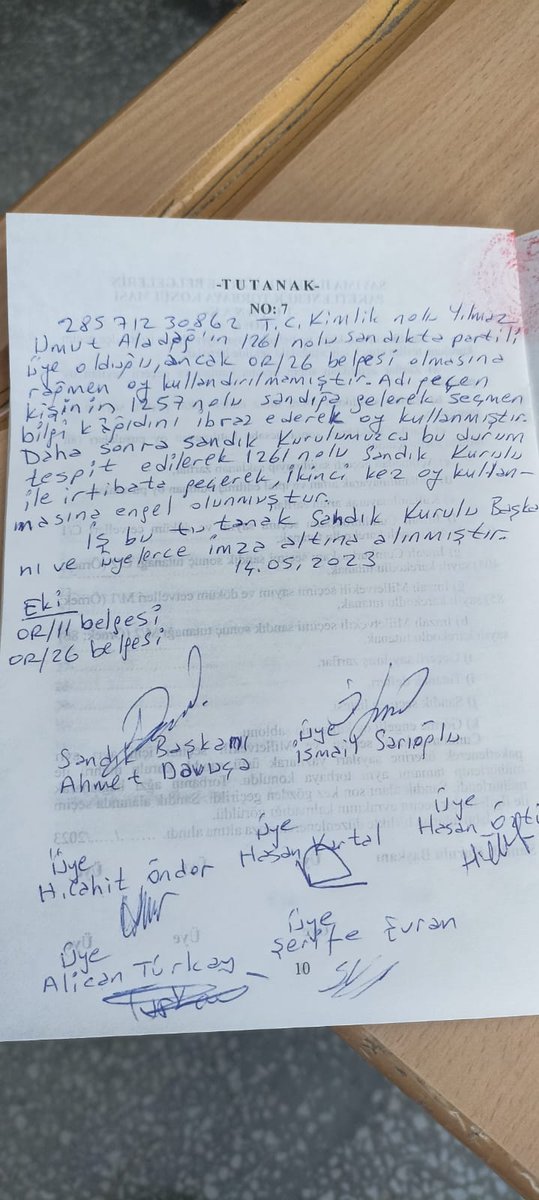 -TUTANAK-
NO: 7
28571230862 T.C. Kimlik nolu Yılmaz
Umut Aladağ'ın 1261 nolu sandıkta partili
üye olduğu, ancak OR/26 belgesi olmasına
rağmen oy kullandırılmamıştır. Adı geçen
kişinin 1257 nolu sandığa gelerek seçmen
bilgi kağıdını ibraz ederek oy kullanmıştır.
Daha sonra sandık Kurulumuzca bu durum
tespit edilerek 1261 nolu Sandık Kurulu
ile irtibata geçerek, ikinci kez oy kullan-
masına engel olunmuştur.
İş bu tutanak Sandık Kurulu Başka
nı ve üyelerce imza altına alınmıştır.
14.05.2023
Eki:
OR/11 belgesi
OR/26 belgesi
Sandık Başkanı
Ahmet Davuça
Üye
İsmail Sarıoğlu
Üye
H.Cahit Öndor
Üye
Hasan Kurtal
Üye
Hasan
Üye
Alican Türkay
Üye
Şerife Evran
10